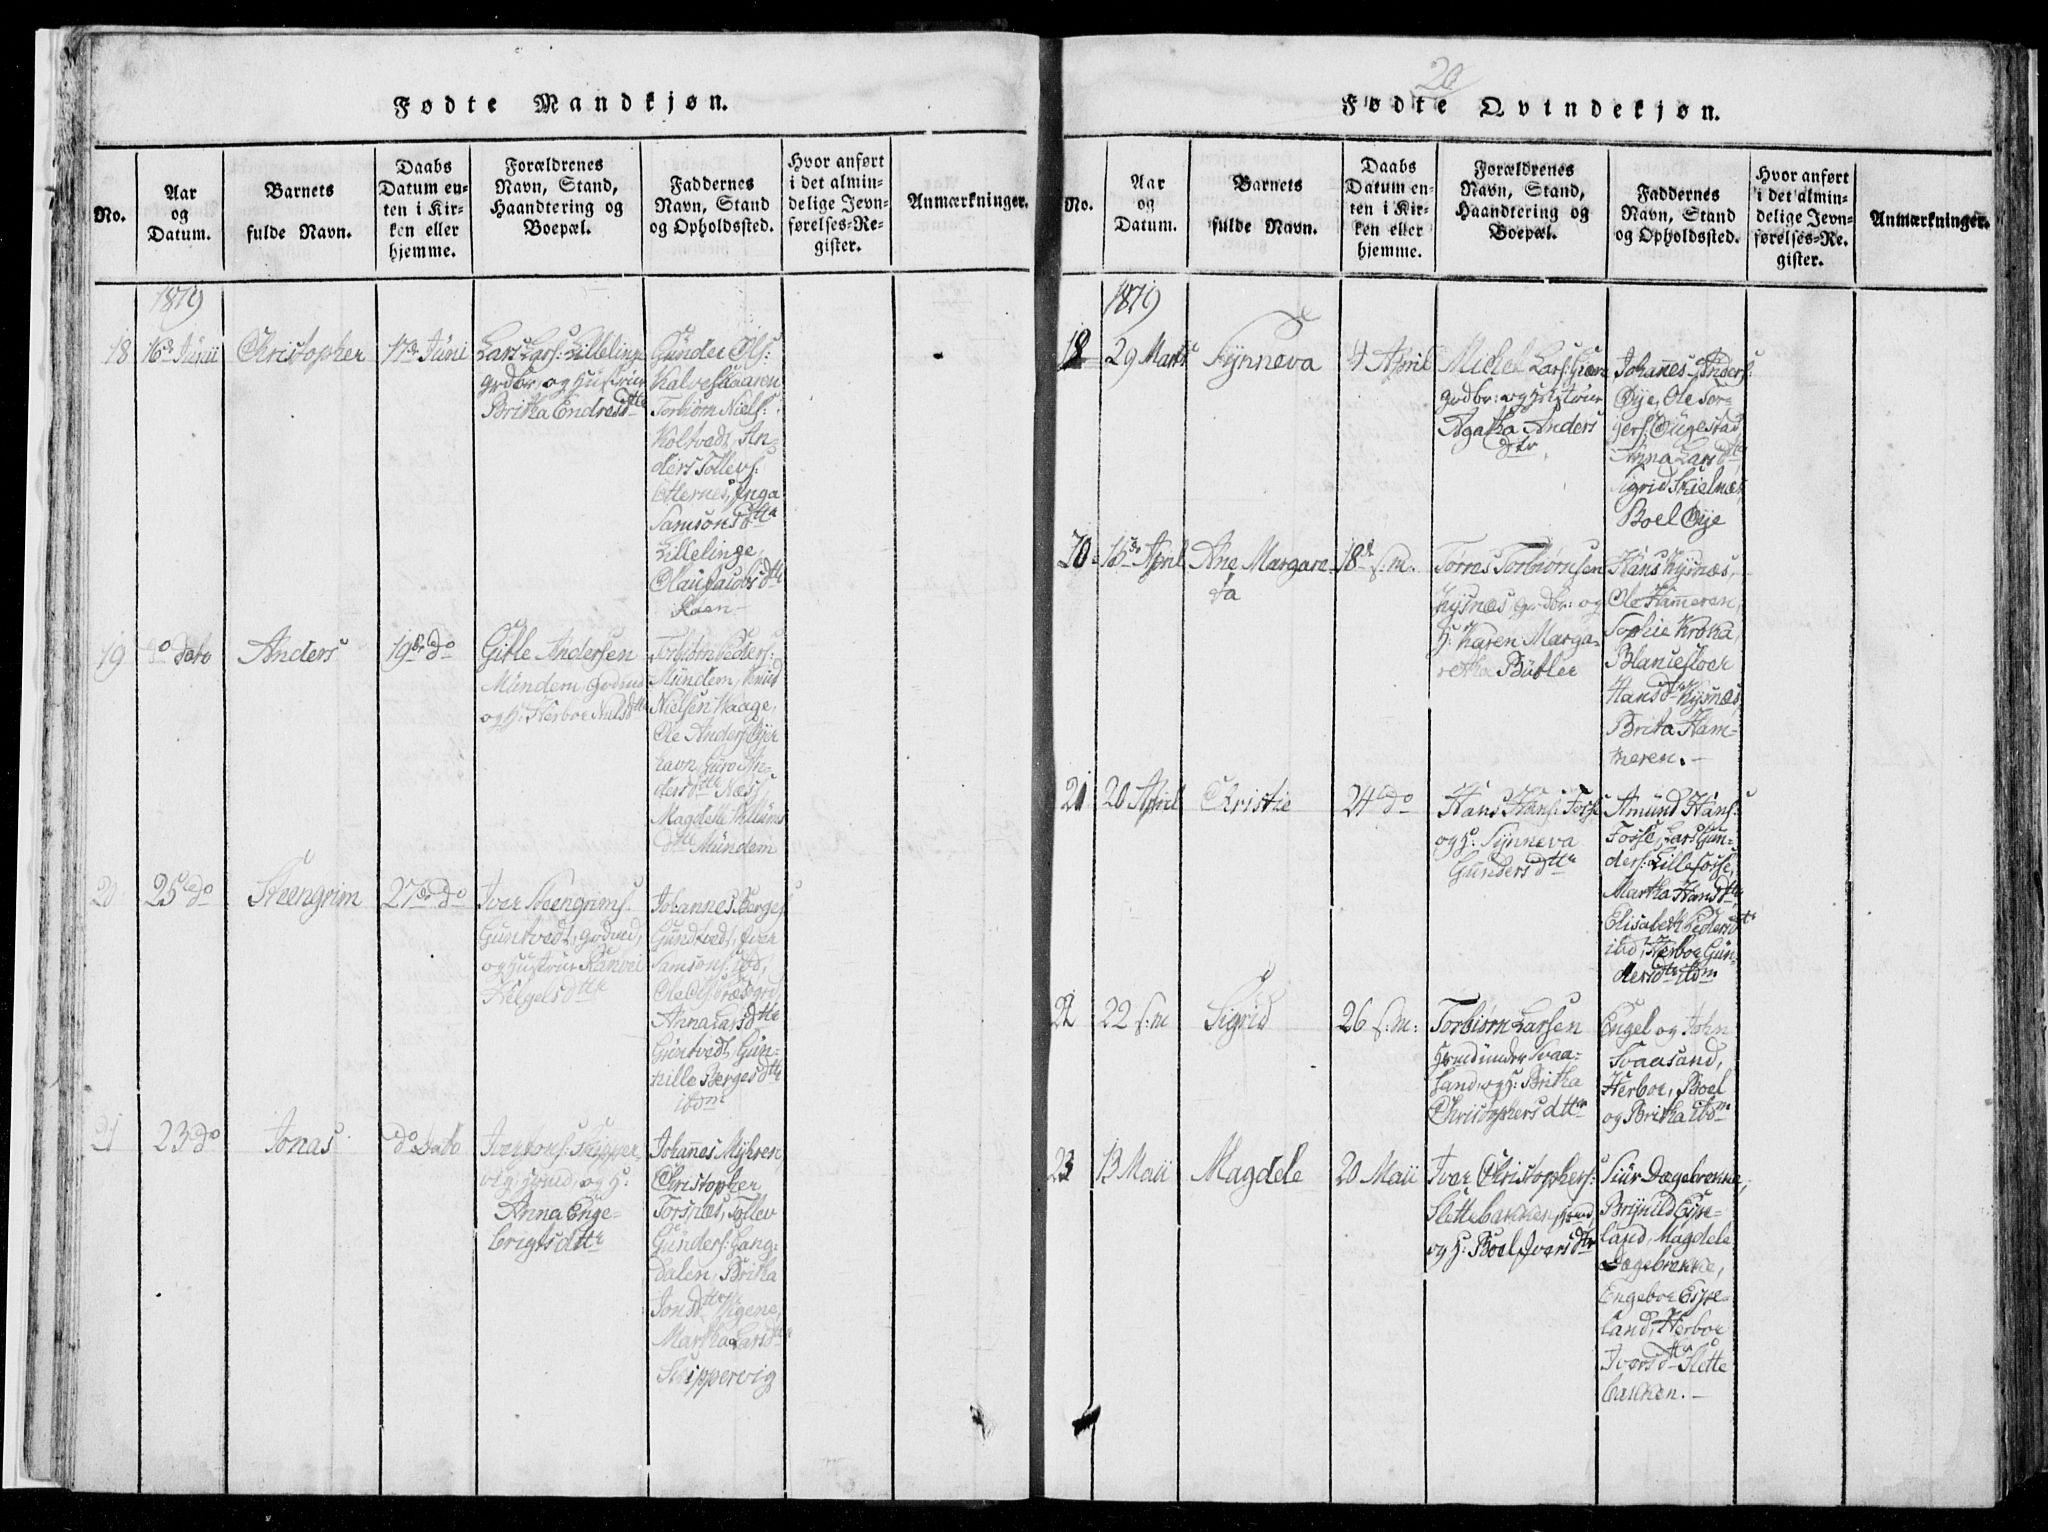 20
Fødte Mandkjøn.
No.
Aar
og
Datum.
Barnets
fulde Navn.
Daabs
Datum en-
ten i Kir-
ken eller
hjemme.
Forældrenes
Navn, Stand,
Haandtering og
Boepæl.
Faddernes
Navn, Stand
og Opholdssted.
Hvor anført
i det almin-
delige Jevn-
førelses-Re-
gister.
Anmærkninger.
1819
18
16de Junii
Christopher
17de Juni
Lars Lars: Lillelinge
grdbr, og Hustrue
Britha Endresdtte
Gunder Ols:
Kalveskaaren
Torbiørn Niels:
Koltvedt, An-
ders Tollevs:
Inga
Samsonsdtte
Lillelinge,
19
do dato
Anders
19de do
Gitle Andersen
Mundem, grdmd
og H: Herboe Nielsdtte
Torbiørn Peders:
Mundem, Knud
Nielsen Haage,
Ole Anders:
havn, Guro An-
dersdtte Næss,
Magdele
dtte Mundem
20
25de do
Steengrim
27de do
Iver Steengrims:
og Hustrue Ranvei
Helgesdtte
Johannes Berges
Gundtvedt, Iver
Samsons: ibd,
Ole Ols:
Anna Larsdtte
Gun-
hille Bergesdtte
ibdm
21
23de do
Jonas
do Dato
Iver Jons: Skipper-
vig, og H:
Anna Enge-
brigtsdtte
Johannes Myhren
Christopher
Torsnæs, Tollev
Gunders: Lang-
dalen, Britha
Jonsdtte Vigene,
Martha Larsdtte
Skippervig
Fødte Qvindekjøn.
No.
Aar
og
Datum.
Barnets
fulde Navn.
Daabs
Datum en-
ten i Kir-
ken eller
hjemme.
Forældrenes
Navn, Stand,
Haandtering og
Boepæl.
Faddernes
Navn, Stand
og Opholdssted.
Hvor anført
i det almin-
delige Jevn-
førelses-Re-
gister.
Anmærkninger.
1819
29 Marts
Synneva
4 April
Michel Lars:
grdbr: og Hustrue
Agatha Anders
dtr
Johanes Anders:
Øye, Ole Tor-
gers: Øugestad
Anna Larsdtte
Sigrid Skielnæs,
Boel Øye
20
15de April
Ane Margare-
ta
18de s: m.
Tørres Torbiørnsen
Hysnæs, grdbr: og
H: Karen Marga-
retha Bütler
Hans Hysnæs,
Ole Hameren,
Sophie Kroka,
Blancesloer
Hansdtr Hysnæs,
Brita Ham-
meren.
21
20 April
Christie
24de do
Hans Hans: Fosse
og H: Synneva
Gundersdtte
Amund Hans:
Fosse, Lars Gun-
ders: Lillefosse,
Martha Hansdtte,
Elisabeth Pedersdtr
ibd, Herboe Gun-
dersdtte ibdm
22
22 s: m
Sigrid
26 s: m:
Torbiørn Larsen
Hsmd under Svaa-
sand, og H: Britha
Christophersdtter
Engel og John
Svaasand,
Herboe, Boel
og Britha ibdm
23
13 Maii
Magdele
20 Maii
Iver Christophers:
Slettebakken, Hsmd,
og H: Boel Iversdtr
Siur Dægebrekke,
Brynild Espe-
land, Magdele
Dægebrekke,
Engeboe Espe-
land, Herboe
Iversdtr Slette
bakken.